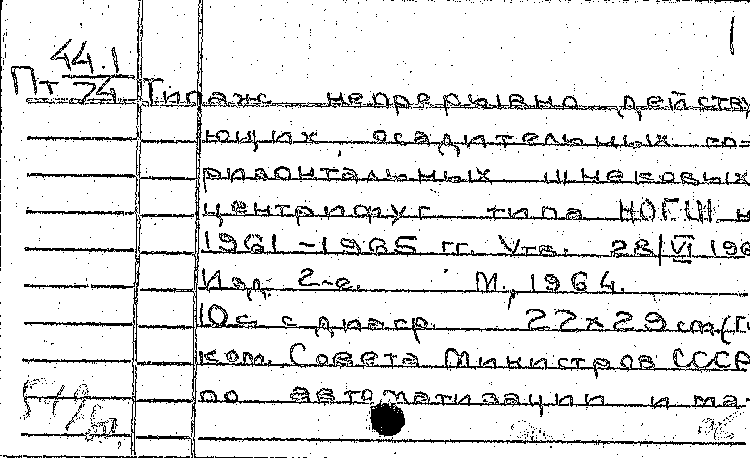 1
44.1
Пт 74 Типаж непрерывно действу
ющих осадительных го-
ризонтальных шнековых
центрифуг типа НОГШ н
1961-1965 гг. Утв. 28/VI 196
Изд. 2-е. М., 1964.
10с. с диагр. 22х29 см (Г
ком. Совета Министров СССР
по автоматизации и ма-